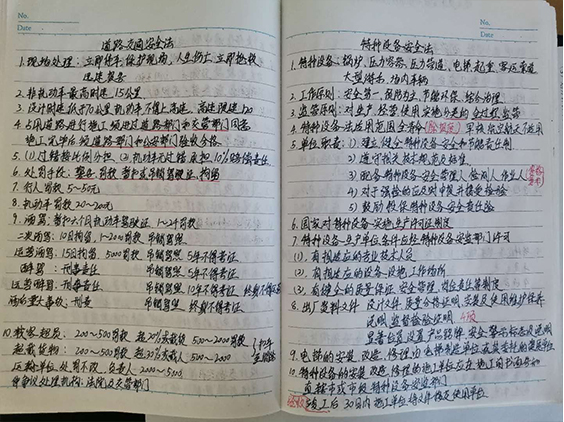 No.
Date
道路交通安全法
1.现场处理：立即停车，保护现场，人员伤亡，立即抢救
迅速报告
2.非机动车最高时速，15公里
3.设计时速低于70公里机动车不得上高速，高速限速120
4.占用道路进行施工须通过道路部门和交管部门同意
施工完毕后须道路部门和公安部门验收合格
5.(1)过错按比例分担，(2)机动车无过错，承担，10%赔偿责任
6.处罚手段：警告 罚款 暂扣或吊销驾驶证，拘留
7.行人罚款 5～50元
8.机动车罚款 20～200元
9.酒驾：暂扣六个月机动车驾驶证 1～2千罚款
二次酒驾：10日拘留，1～2000罚款 吊销驾照
运营酒驾：15日拘留，5000罚款 吊销驾照 5年不得考证
醉驾：刑事责任 吊销驾照 5年不得考证
运营醉驾：刑事责任 吊销驾照 10年不得考证
酒后重大事故：刑责 吊销驾照 终身不得考证
10.载客超员：200～500罚款 超20%去载后 500～2000罚款
超载货物：200～500罚款 超30%去载后 500～2000罚款
运输单位，处罚不改，负责人 2000～5000
争议处理机构：法院或交管部门
No.
Date
特种设备安全法
1.特种设备：锅炉，压力容器，压力管道，电梯，起重，客运索道
大型游乐，场内车辆
2.工作原则：安全第一，预防为主，节能环保，综合治理
3.监管原则：对生产、经营、使用、实施分类的全过程，监管
4.特种设备法应用范围
5.单位职责：(1)建立健全特种设备安全和节能责任制
2)遵守相关技术规范及标准
3)配备特种设备安全管理人、检测人、作业人
4)对于强检的应及时申报并接受检验
5)鼓励投保特种设备安全责任险
6.国家对特种设备实施生产许可证制度
7.特种设备生产单位条件应经特种设备安监部门许可
(1).有相适应的专业技术人员
(2).有相适应的设备、设施、工作场所
(3).有健全的质量保证、安全管理、岗位责任等制度
8.出厂资料文件 设计文件 质量合格证明 安装及使用维护保养
说明 监督检验证明
显著位置设置产品铭牌、安全警示标志及说明
9.电梯的安装、改造、修理，由电梯制造单位或其委托的单位
10.特种设备的安装、改造、修理的施工单位应在施工前书面告知
直辖市或市级特种设备安监部门
验收 竣工后30日内施工单位将文件移交使用单位